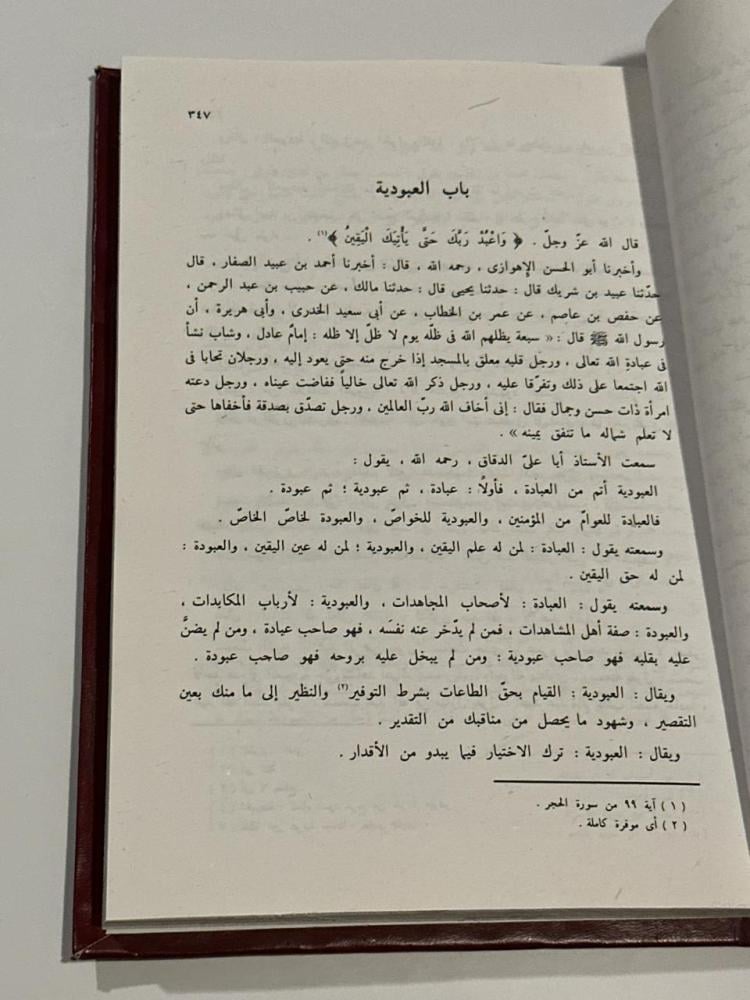 ٣٤٧
باب العبودية
قال الله عزّ وجلّ . ﴿ وَاعْبُدْ رَبَّكَ حَتَّى يَأْتِيَكَ الْيَقِينُ ﴾(١) .
وأخبرنا أبو الحسن الإهوازى ، رحمه الله ، قال : أخبرنا أحمد بن عبيد الصفار ، قال
حدّثنا عبيد بن شريك قال : حدثنا يحيى قال : حدثنا مالك ، عن حبيب بن عبد الرحمن ،
عن حفص بن عاصم ، عن عمر بن الخطاب ، عن أبى سعيد الخدرى ، وأبى هريرة ، أن
رسول الله ﷺ قال : « سبعة يظلهم الله فى ظلّه يوم لا ظلّ إلا ظله : إمامٌ عادل ، وشاب نشأ
فى عبادةِ الله تعالى ، ورجل قلبه معلق بالمسجد إذا خرج منه حتى يعود إليه ، ورجلان تحابا فى
الله اجتمعا على ذلك وتفرّقا عليه ، ورجل ذكر الله تعالى خالياً ففاضت عيناه ، ورجل دعته
امرأة ذات حسن وجمال فقال : إنى أخاف الله ربّ العالمين ، ورجل تصدّق بصدقة فأخفاها حتى
لا تعلم شماله ما تنفق يمينه » .
سمعت الأستاذ أبا علىّ الدقاق ، رحمه الله ، يقول :
العبودية أتم من العبادة ، فأولاً : عبادة ، ثم عبودية ؛ ثم عبودة .
فالعبادة للعوامّ من المؤمنين ، والعبودية للخواصّ ، والعبودة لخاصّ الخاصّ .
وسمعته يقول : العبادة : لمن له علم اليقين ، والعبودية ؛ لمن له عين اليقين ، والعبودة :
لمن له حق اليقين .
وسمعته يقول : العبادة : لأصحاب المجاهدات ، والعبودية : لأرباب المكابدات ،
والعبودة : صفة أهل المشاهدات ، فمن لم يدّخر عنه نفسَه ، فهو صاحب عبادة ، ومن لم يضنَّ
عليه بقلبه فهو صاحب عبودية : ومن لم يبخل عليه بروحه فهو صاحب عبودة .
ويقال : العبودية : القيام بحقّ الطاعات بشرط التوفير(٢) والنظير إلى ما منك بعين
التقصير ، وشهود ما يحصل من مناقبك من التقدير .
ويقال : العبودية : ترك الاختيار فيما يبدو من الأقدار .
( ١ ) آية ٩٩ من سورة الحجر .
( ٢ ) أى موفرة كاملة .